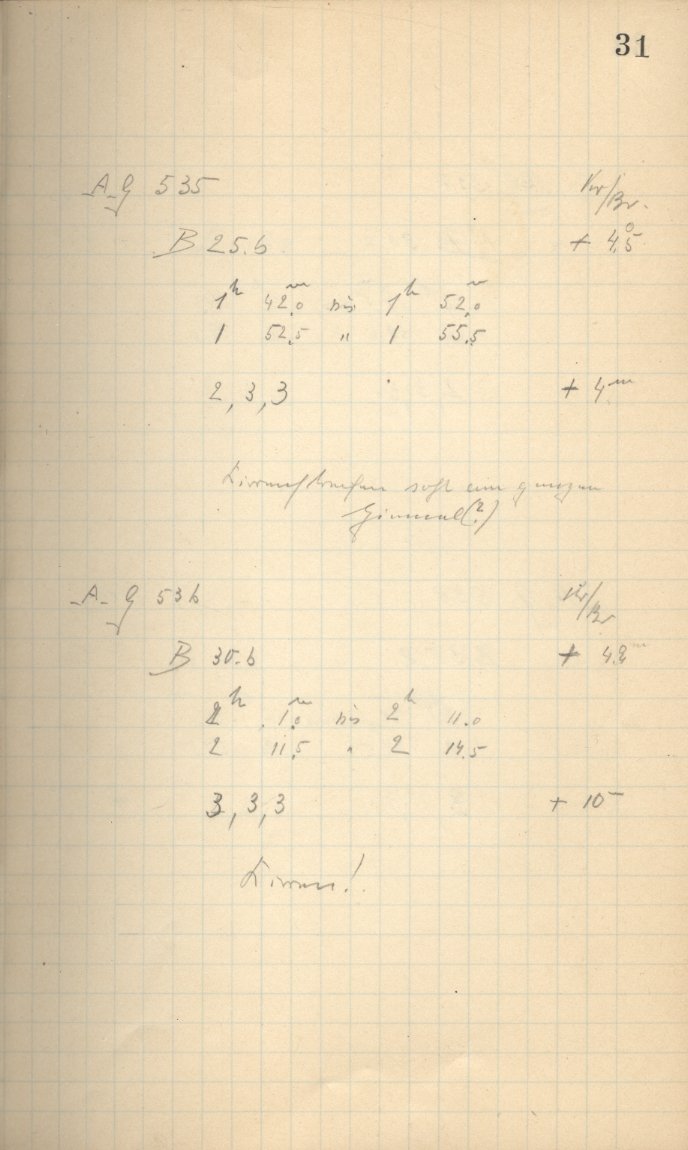 31
A-G 535 Kr/Br.
B 25.6 + 4.5
1h 42,0m bis 1h 52,0m
1 52,5 " 1 55,5
2, 3, 3 + 4m
Cirrusstreifen am ganzen
Himmel (?)
A-G 536 Kr/Br
B 30.6 + 4.8m
2h 1,0m bis 2h 11.0
2 11,5 " 2 14.5
3, 3, 3 + 10m
Cirren!